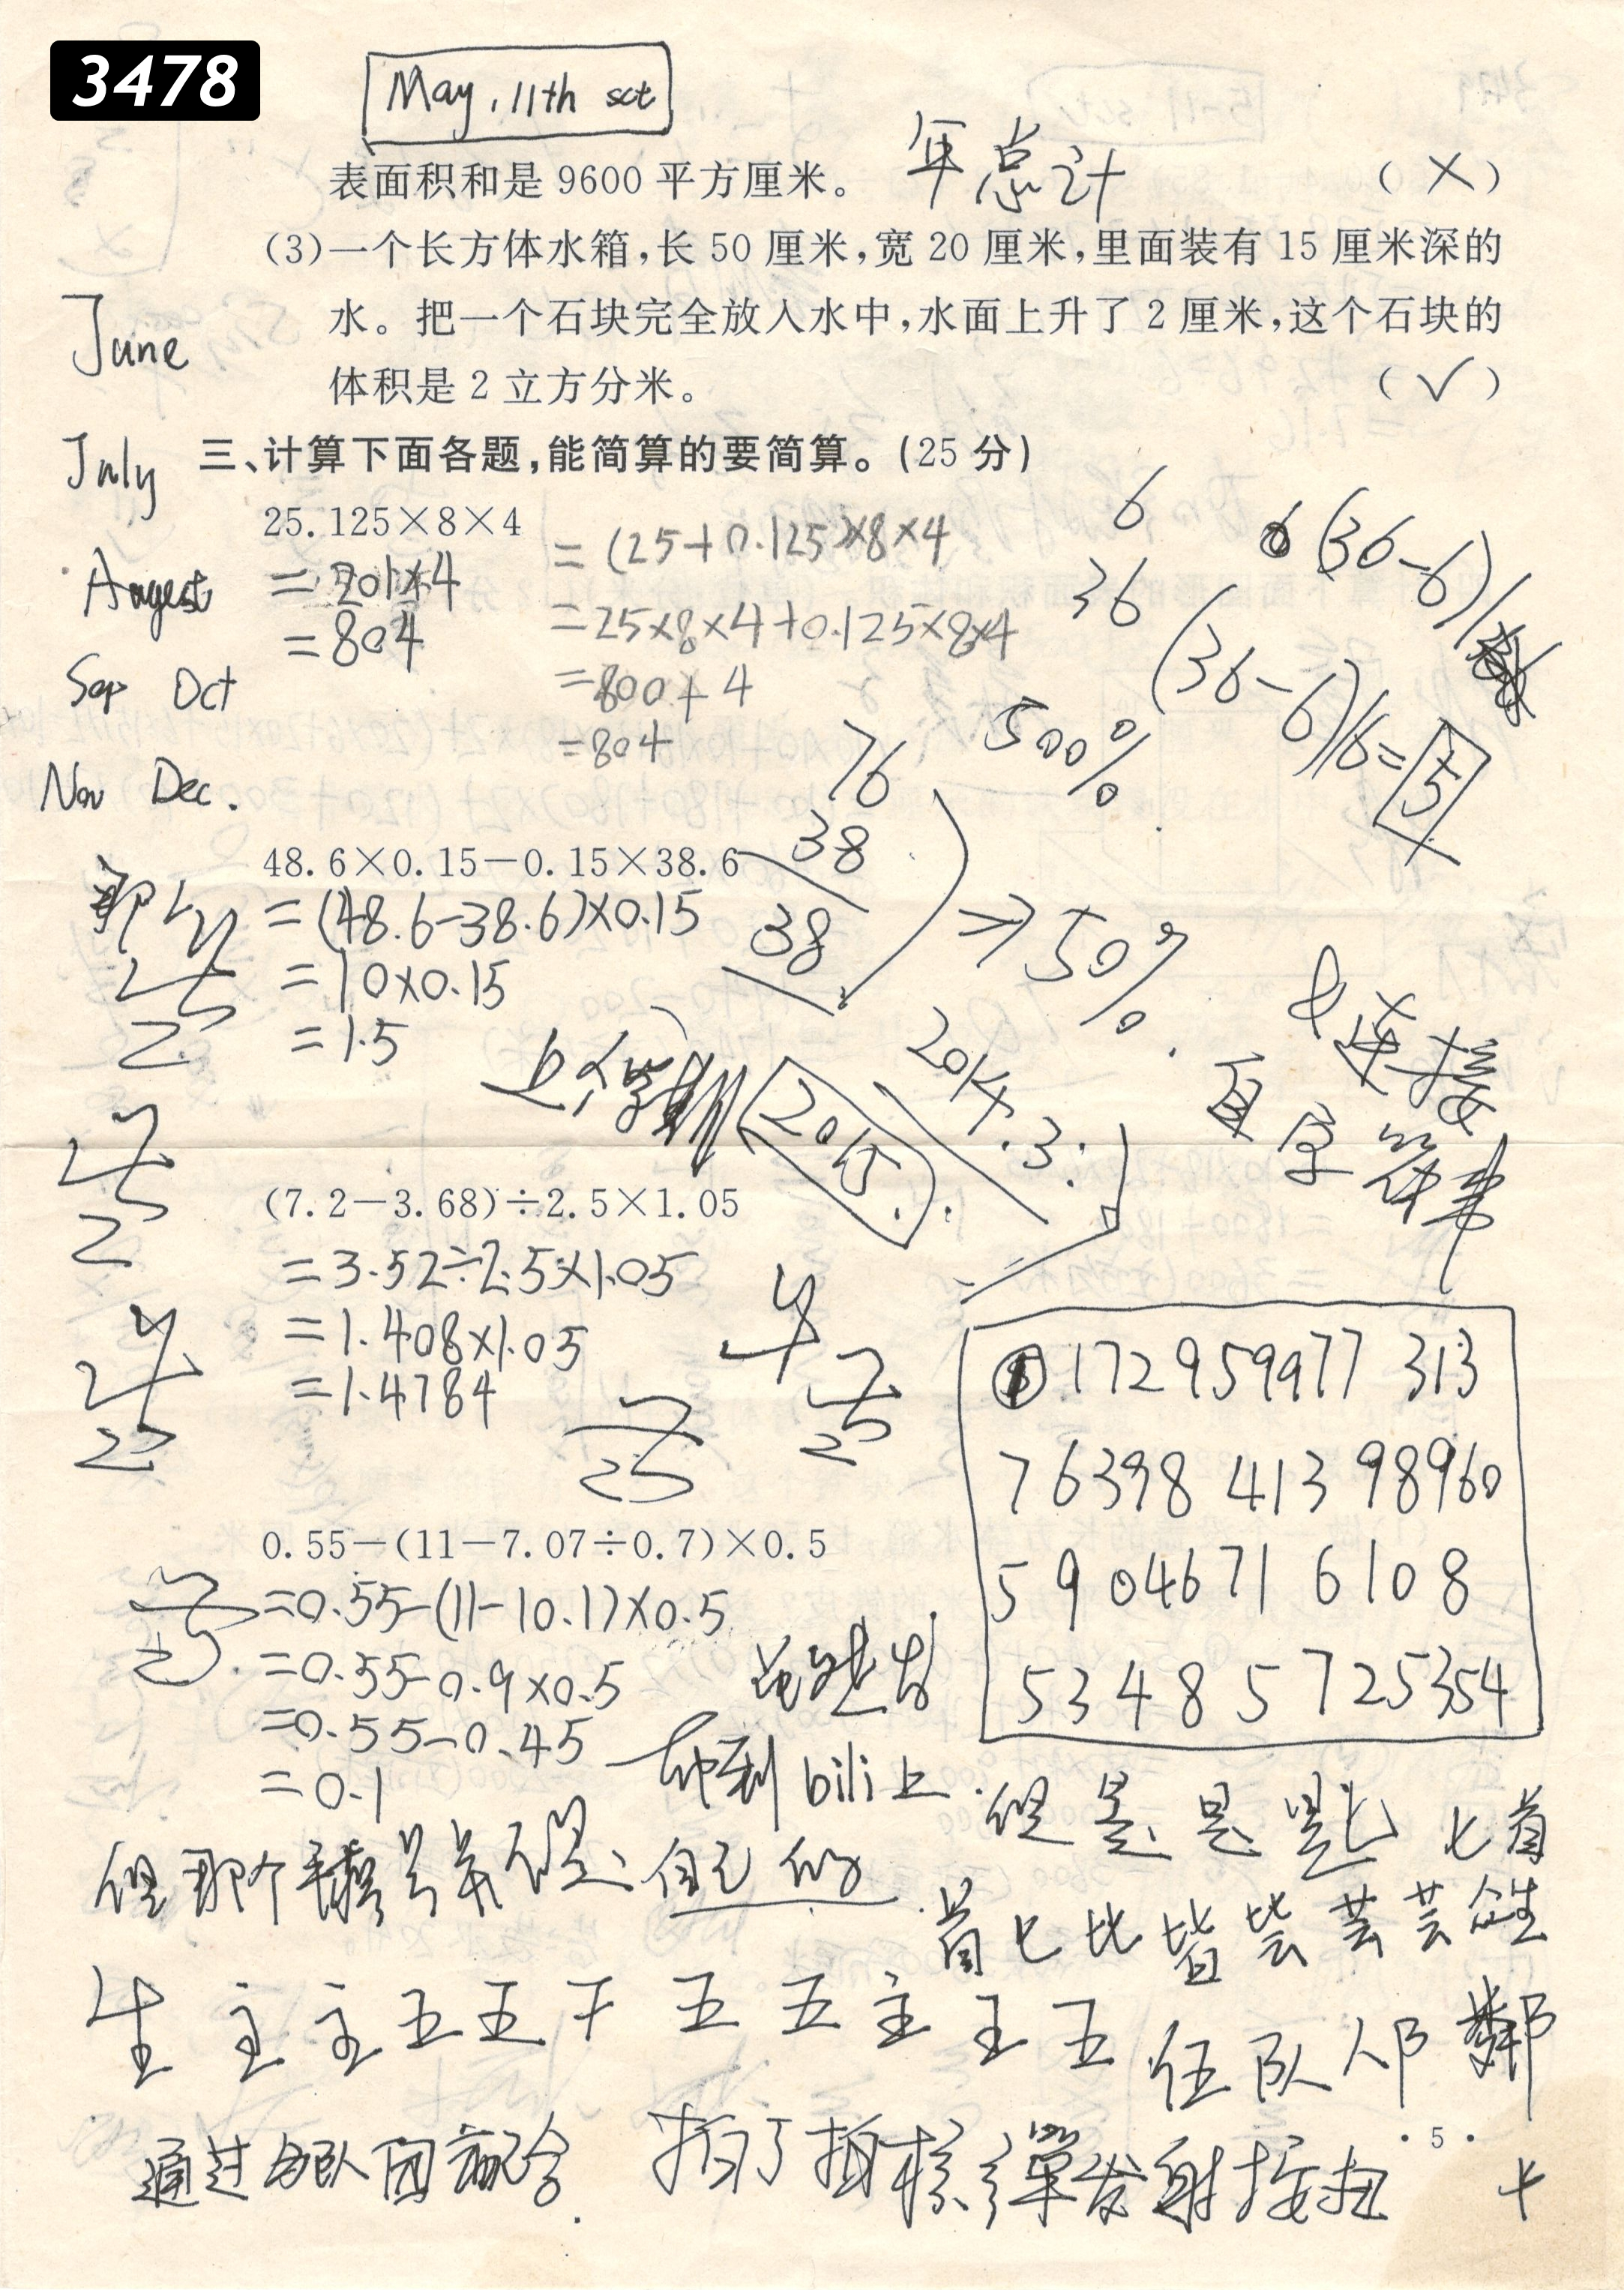 3478
May, 11th sct
表面积和是 9600 平方厘米。 年总计 (×)
(3)一个长方体水箱,长 50 厘米,宽 20 厘米,里面装有 15 厘米深的
水。把一个石块完全放入水中,水面上升了 2 厘米,这个石块的
体积是 2 立方分米。 (√)
June
July
Augest
Sep Oct
Nov Dec.
三、计算下面各题,能简算的要简算。(25 分)
25.125×8×4
=201×4
=804
=(25+0.125)×8×4
=25×8×4+0.125×8×4
=800+4
=804
6
36
(36-6)/
(36-6)/6=5
500%
76
38
38
→50%
48.6×0.15-0.15×38.6
=(48.6-38.6)×0.15
=10×0.15
=1.5
2014.3.
2015.
&连接
字符串
(7.2-3.68)÷2.5×1.05
=3.52÷2.5×1.05
=1.408×1.05
=1.4784
172959977 313
76398 413 98960
5904671 6108
53485725354
0.55-(11-7.07÷0.7)×0.5
=0.55-(11-10.1)×0.5
=0.55-0.9×0.5
=0.55-0.45
=0.1
到 bili上
但是 是 匙 七首
但那个 号并 自己的
首七比皆 芸芸众生
生 主 主 五 五 王 五 五 主 王 五 伍 队 邻
通过 队团 拍了拍核弹发射按扭
·5·
七